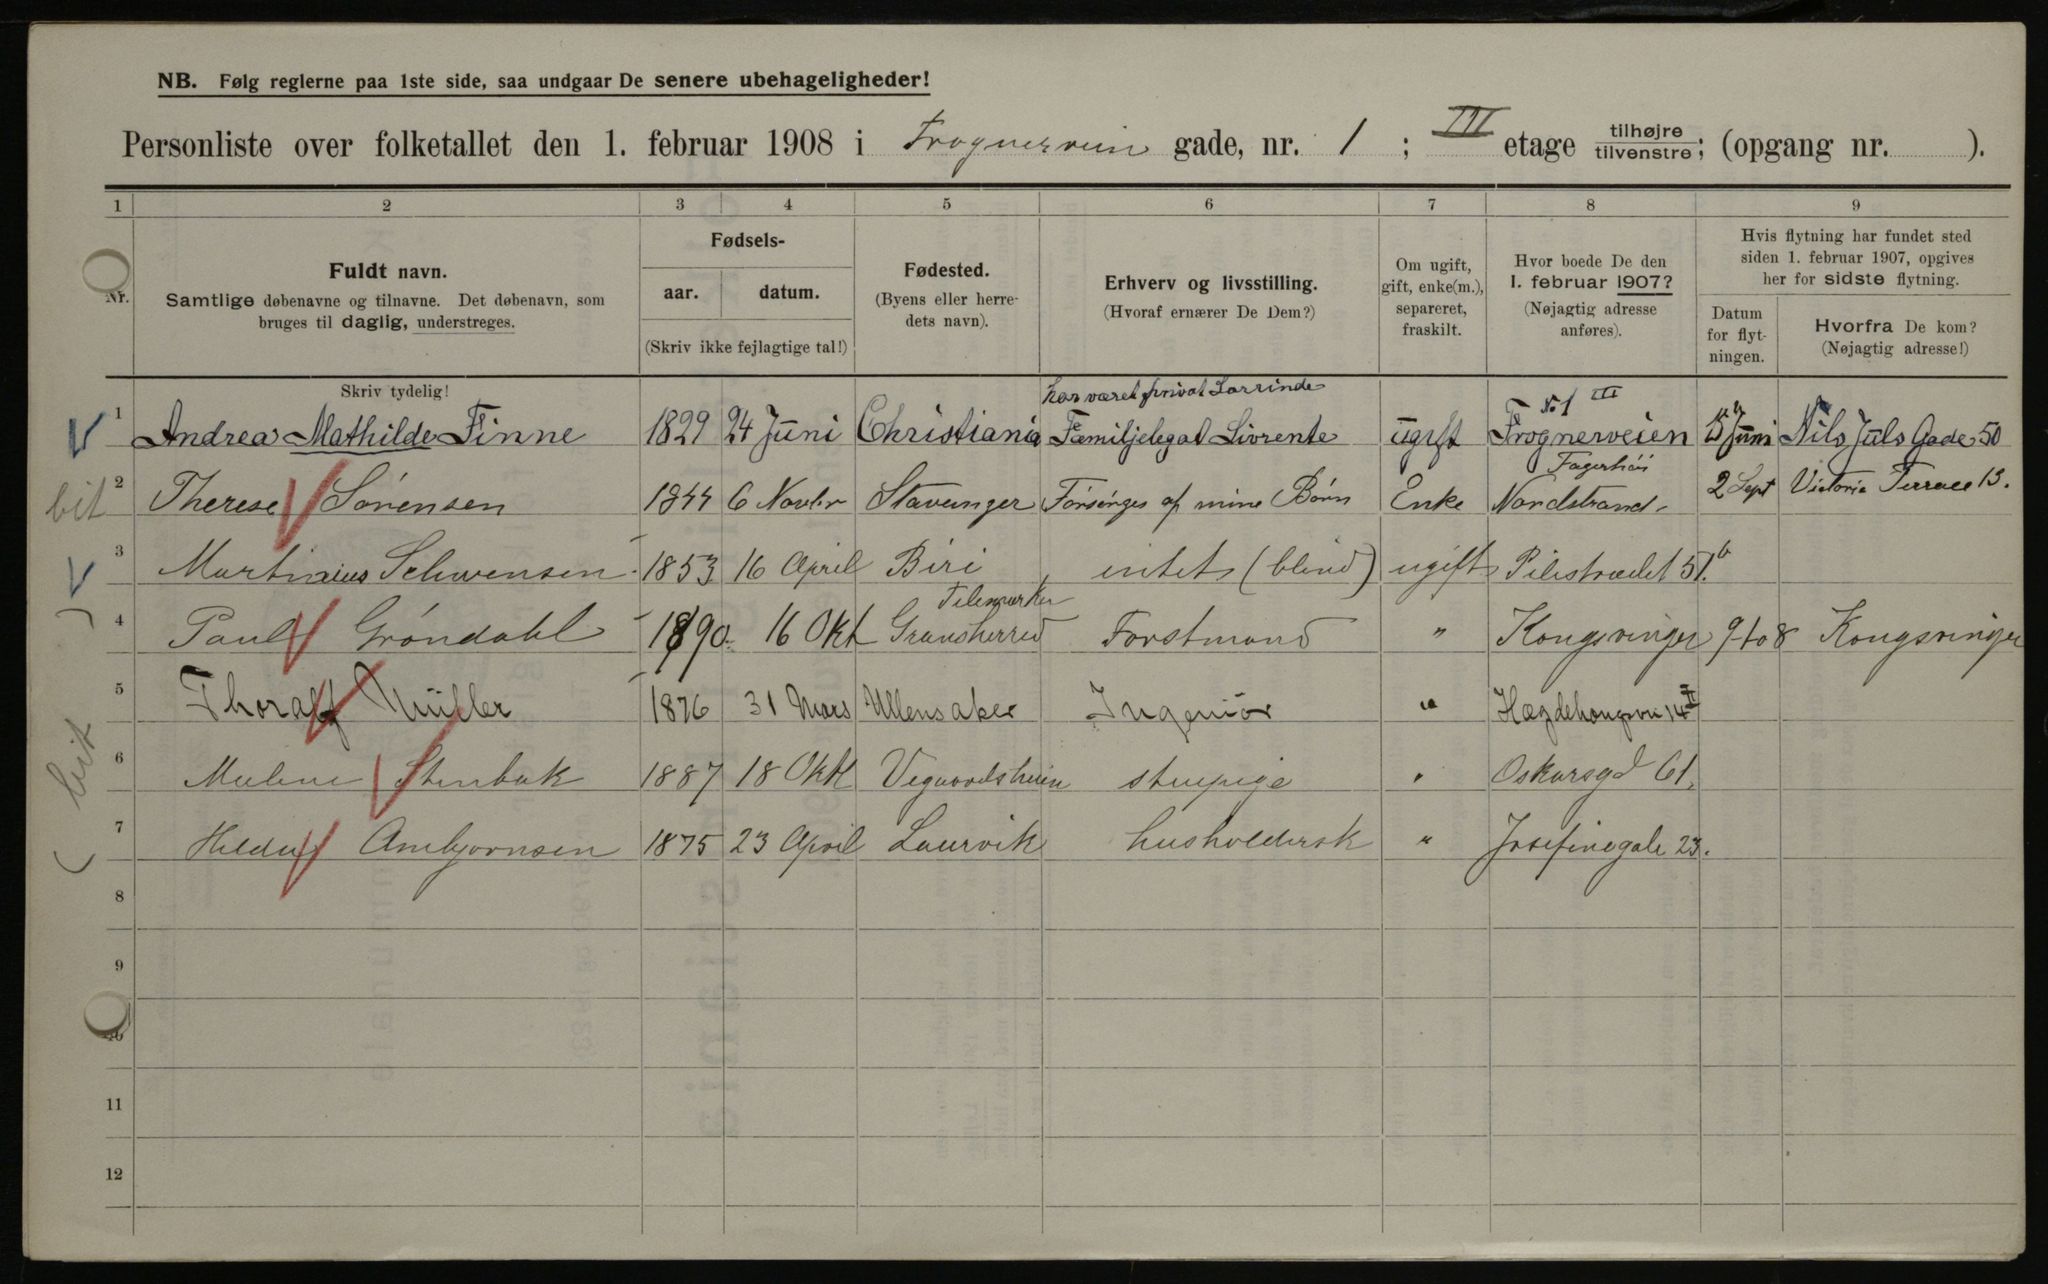 NB. Følg reglerne paa 1ste side, saa undgaar De senere ubehageligheder!
Personliste over folketallet den 1. februar 1908 i Frognerveien gade, nr. 1 ; III etage tilhøjre tilvenstre; (opgang nr. ).
1 2 3 4 5 6 7 8 9
Nr.
Fuldt navn.
Samtlige døbenavne og tilnavne. Det døbenavn, som
bruges til daglig, understreges.
Fødsels-
aar. datum.
(Skriv ikke fejlagtige tal!)
Fødested.
(Byens eller herre-
dets navn).
Erhverv og livsstilling.
(Hvoraf ernærer De Dem?)
Om ugift,
gift, enke(m.),
separeret,
fraskilt.
Hvor boede De den
1. februar 1907?
(Nøjagtig adresse
anføres).
Hvis flytning har fundet sted
siden 1. februar 1907, opgives
her for sidste flytning.
Datum
for flyt-
ningen.
Hvorfra De kom?
(Nøjagtig adresse!)
Skriv tydelig!
har været privat Lærrinde
No. 1 III
1 Andrea Mathilde Finne 1829 24 Juni Christiania Familjelegat Livrente ugift Frognerveien 15 Juni Nils Juls Gade 50
Fagerhøi
2 Therese Sørensen 1844 6 Novbr Stavanger Forsørges af mine Børn Enke Nordstrand 2 Sept Victoria Terrace 13.
3 Schwensen 1853 16 April Biri intet (blind) ugift Pilestrædet 51.b
Telemarken
4 Paul Grøndahl 1890 16 Okt Gransherred Forstmand " Kongsvinger 9-1-08 Kongsvinger
5 Thoralf Müller 1876 31 Mars Ullensaker Ingeniør " 14 II
6 Stenbak 1887 18 Okt stuepige " Oskarsgd 61.
7 Hilda Ambjørnsen 1875 23 April Laurvik husholdersk " Josefinegade 23.
8
9
10
11
12